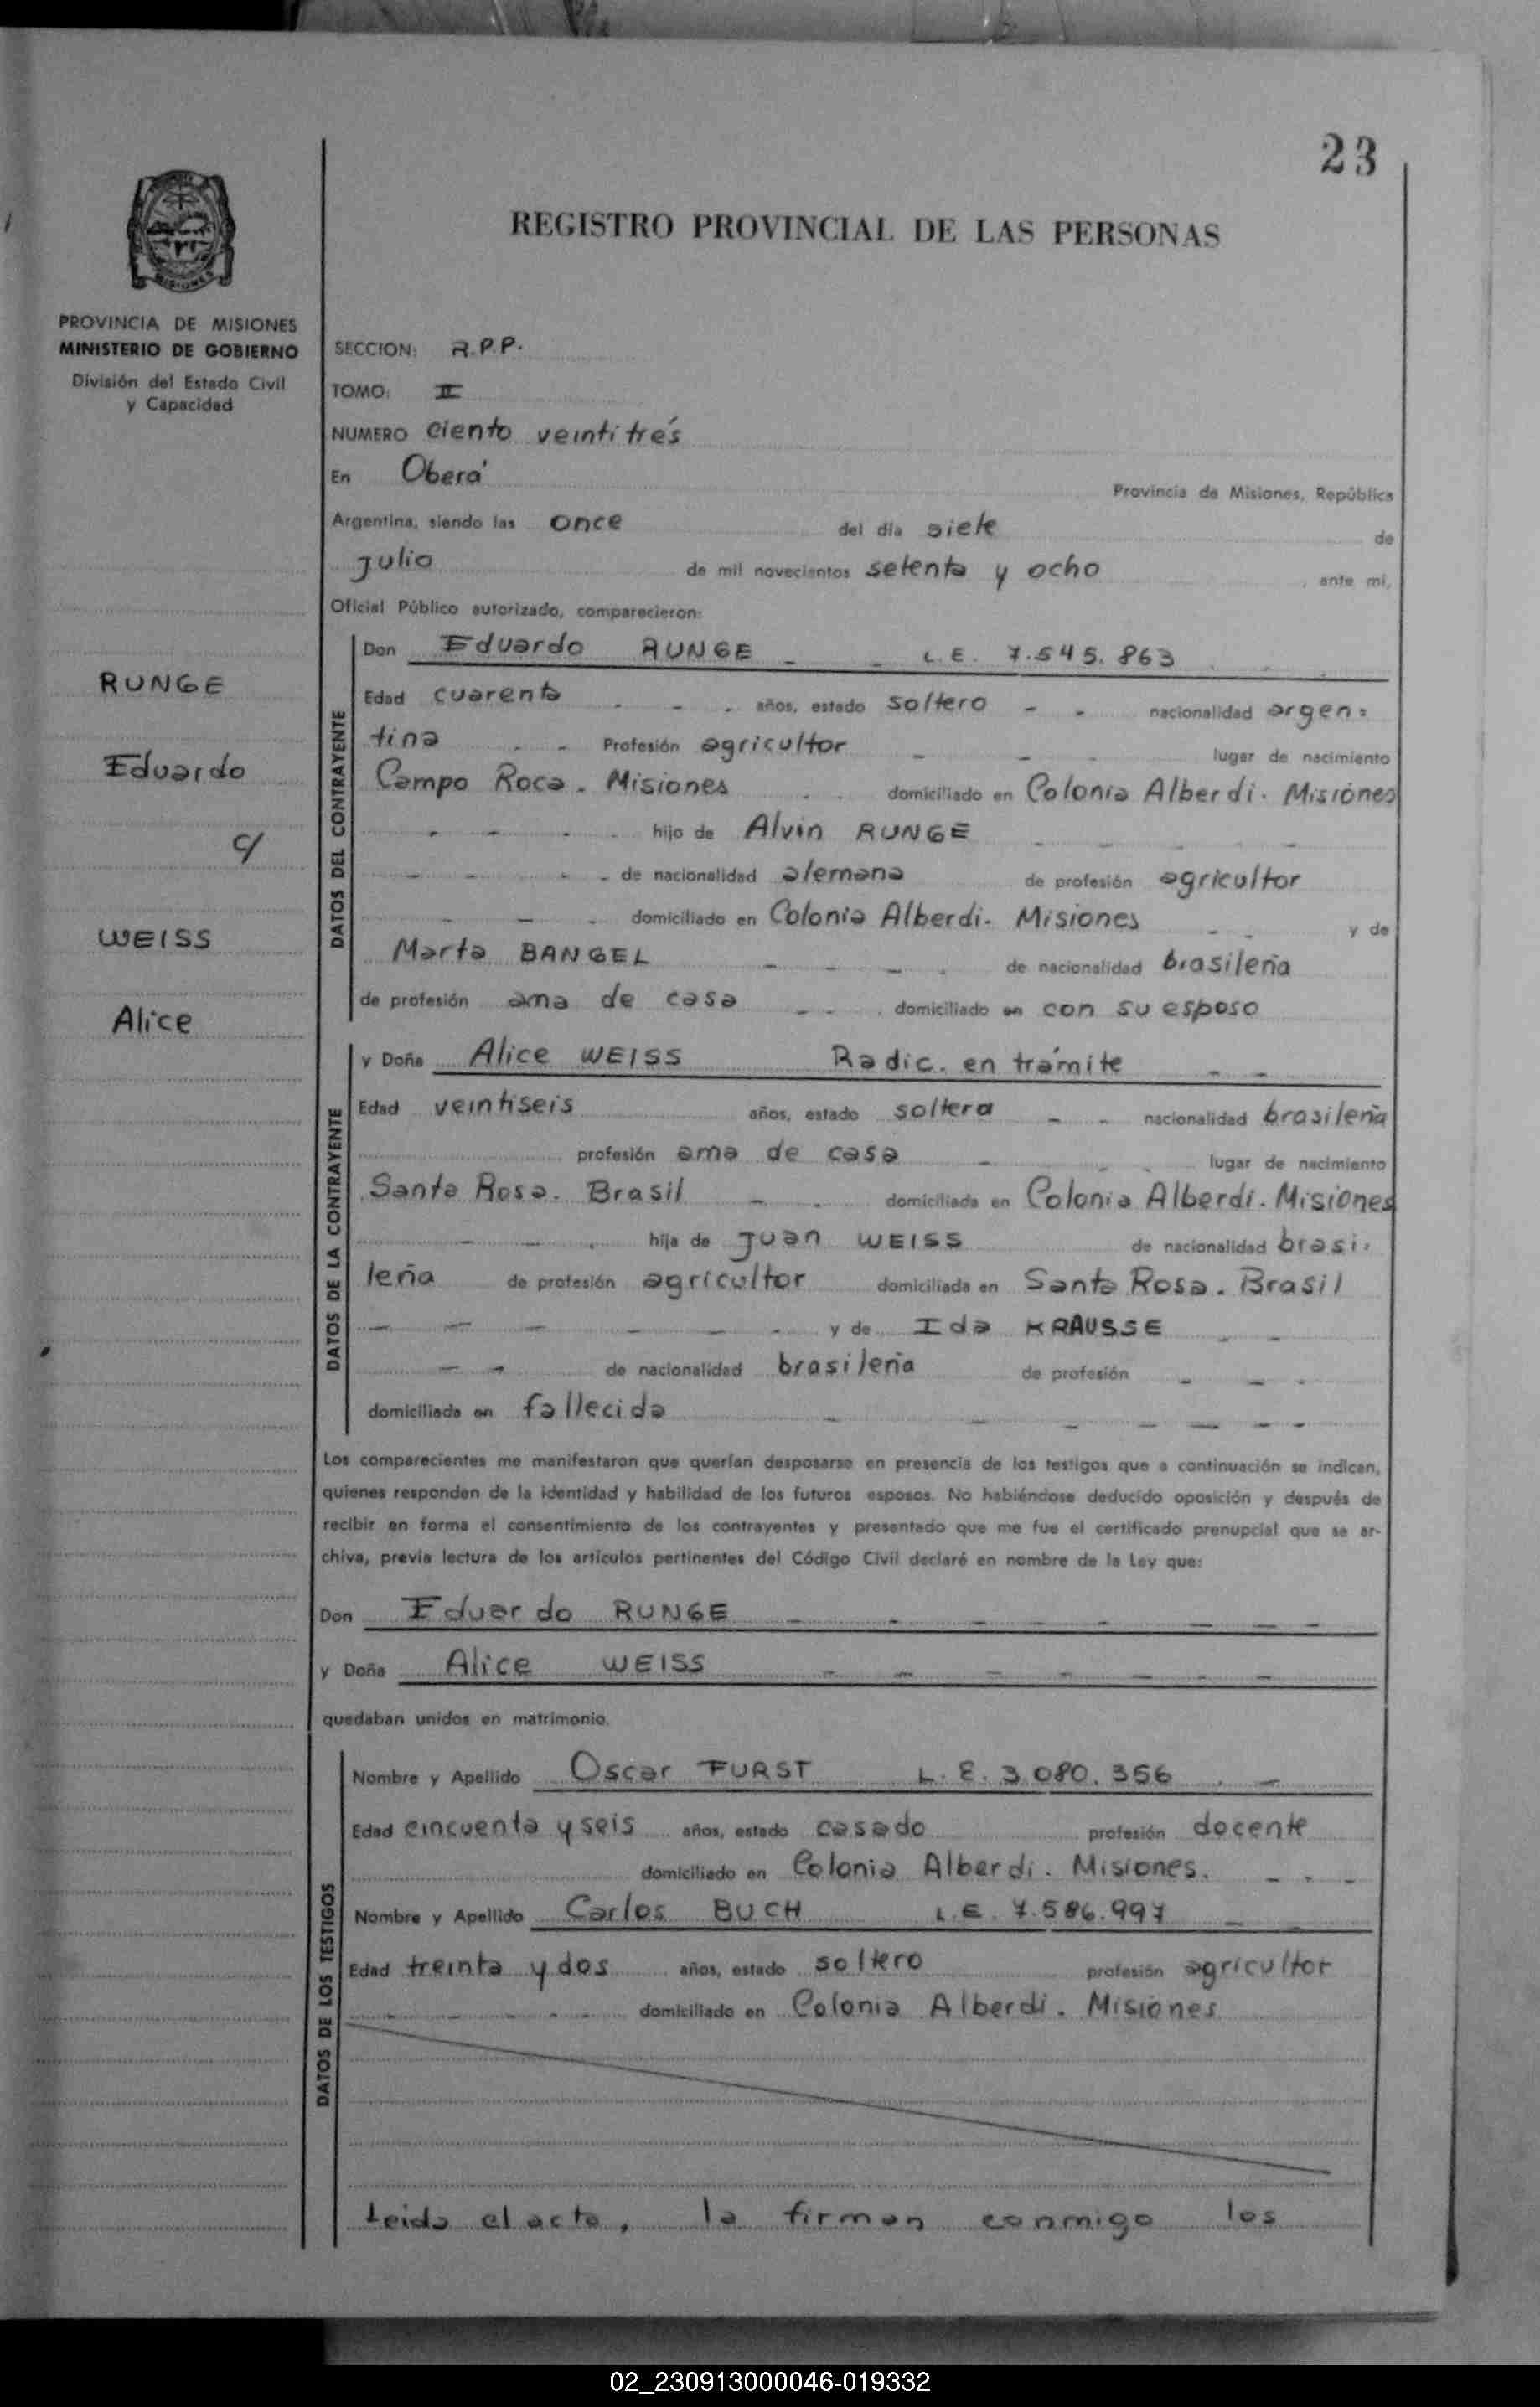 23
REGISTRO PROVINCIAL DE LAS PERSONAS
MISIONES
PROVINCIA DE MISIONES
MINISTERIO DE GOBIERNO
División del Estado Civil
y Capacidad
RUNGE
Eduardo
c/
WEISS
Alice
SECCION: R.P.P.
TOMO: II
NUMERO ciento veintitrés
En Oberá Provincia de Misiones, República
Argentina, siendo las once del día siete de
julio de mil novecientos setenta y ocho , ante mí,
Oficial Público autorizado, comparecieron:
DATOS DEL CONTRAYENTE
Don Eduardo RUNGE - - L.E. 7.545.863
Edad cuarenta - - - años, estado soltero - - nacionalidad argen=
tina - - Profesión agricultor - - - lugar de nacimiento
Campo Roca. Misiones - - domiciliado en Colonia Alberdi. Misiones
- - - - hijo de Alvin RUNGE - - - -
- - - - de nacionalidad alemana de profesión agricultor
- - - domiciliado en Colonia Alberdi. Misiones - - y de
Marta BANGEL - - - - de nacionalidad brasileña
de profesión ama de casa - - - domiciliado en con su esposo
DATOS DE LA CONTRAYENTE
y Doña Alice WEISS Radic. en trámite - -
Edad veintiseis años, estado soltera - - nacionalidad brasileña
profesión ama de casa - - - lugar de nacimiento
Santa Rosa. Brasil - - domiciliada en Colonia Alberdi. Misiones
- - - - hija de Juan WEISS de nacionalidad brasi=
leña de profesión agricultor domiciliada en Santa Rosa. Brasil
- - - - - - - y de Ida KRAUSSE - -
- - de nacionalidad brasileña de profesión - - -
domiciliada en fallecida - - - - - - -
Los comparecientes me manifestaron que querían desposarse en presencia de los testigos que a continuación se indican,
quienes responden de la identidad y habilidad de los futuros esposos. No habiéndose deducido oposición y después de
recibir en forma el consentimiento de los contrayentes y presentado que me fue el certificado prenupcial que se ar-
chiva, previa lectura de los artículos pertinentes del Código Civil declaré en nombre de la Ley que:
Don Eduardo RUNGE - - - - - - -
y Doña Alice WEISS - - - - - - -
quedaban unidos en matrimonio.
DATOS DE LOS TESTIGOS
Nombre y Apellido Oscar FURST L.E. 3.080.356 - -
Edad cincuenta y seis años, estado casado profesión docente
domiciliado en Colonia Alberdi. Misiones. - - -
Nombre y Apellido Carlos BUCH L.E. 7.586.997 - -
Edad treinta y dos años, estado soltero profesión agricultor
- - - - - domiciliado en Colonia Alberdi. Misiones
Leida el acta, la firman conmigo los
02_230913000046-019332